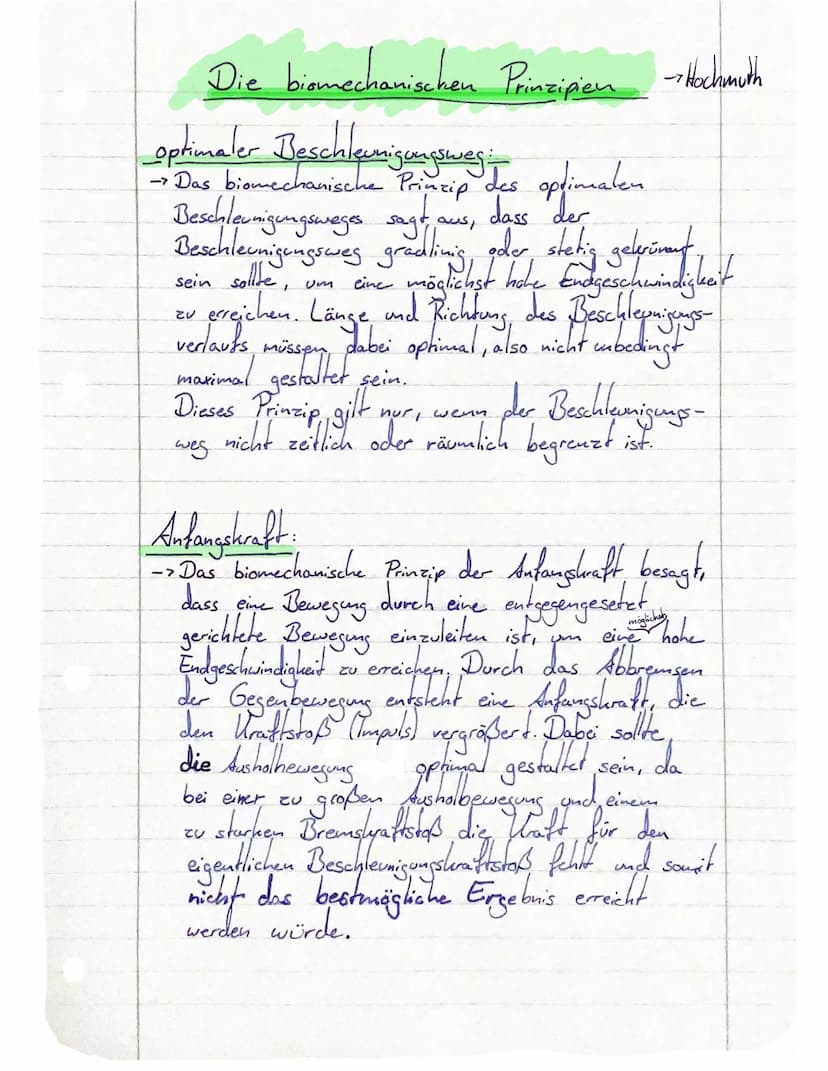 Die biomechanischen Prinzipien → Hochmuth
optimaler Beschleunigungsweg:
→ Das biomechanische Prinzip des optimalen
Beschleunigungsweges sagt aus, dass der
Beschleunigungsweg gradlinig oder stetig gekrümmt
sein sollte, um eine möglichst hohe Endgeschwindigkeit
zu erreichen. Länge und Richtung des Beschleunigungs-
verlaufs müssen dabei optimal, also nicht unbedingt
maximal gestaltet sein.
Dieses Prinzip gilt nur, wenn der Beschleunigungs-
weg nicht zeitlich oder räumlich begrenzt ist.
Anfangskraft:
→ Das biomechanische Prinzip der Anfangskraft besagt,
dass eine Bewegung durch eine entgegengesetzt
gerichtete Bewegung einzuleiten ist, um eine möglichst hohe
Endgeschwindigkeit zu erreichen. Durch das Abbremsen
der Gegenbewegung entsteht eine Anfangskraft, die
den Kraftstoß (Impuls) vergrößert. Dabei sollte
die Ausholbewegung optimal gestaltet sein, da
bei einer zu großen Ausholbewegung und einem
zu starken Bremskraftstoß die Kraft für den
eigentlichen Beschleunigungskraftstoß fehlt und somit
nicht das bestmögliche Ergebnis erreicht
werden würde.